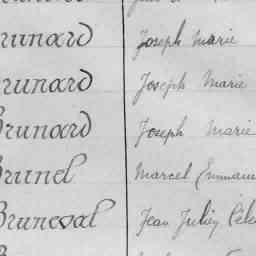 Brunard Joseph Marie
Brunard Joseph Marie
Brunard Joseph Marie
Brunel Marcel Emmanu
Bruneval Jean Julien